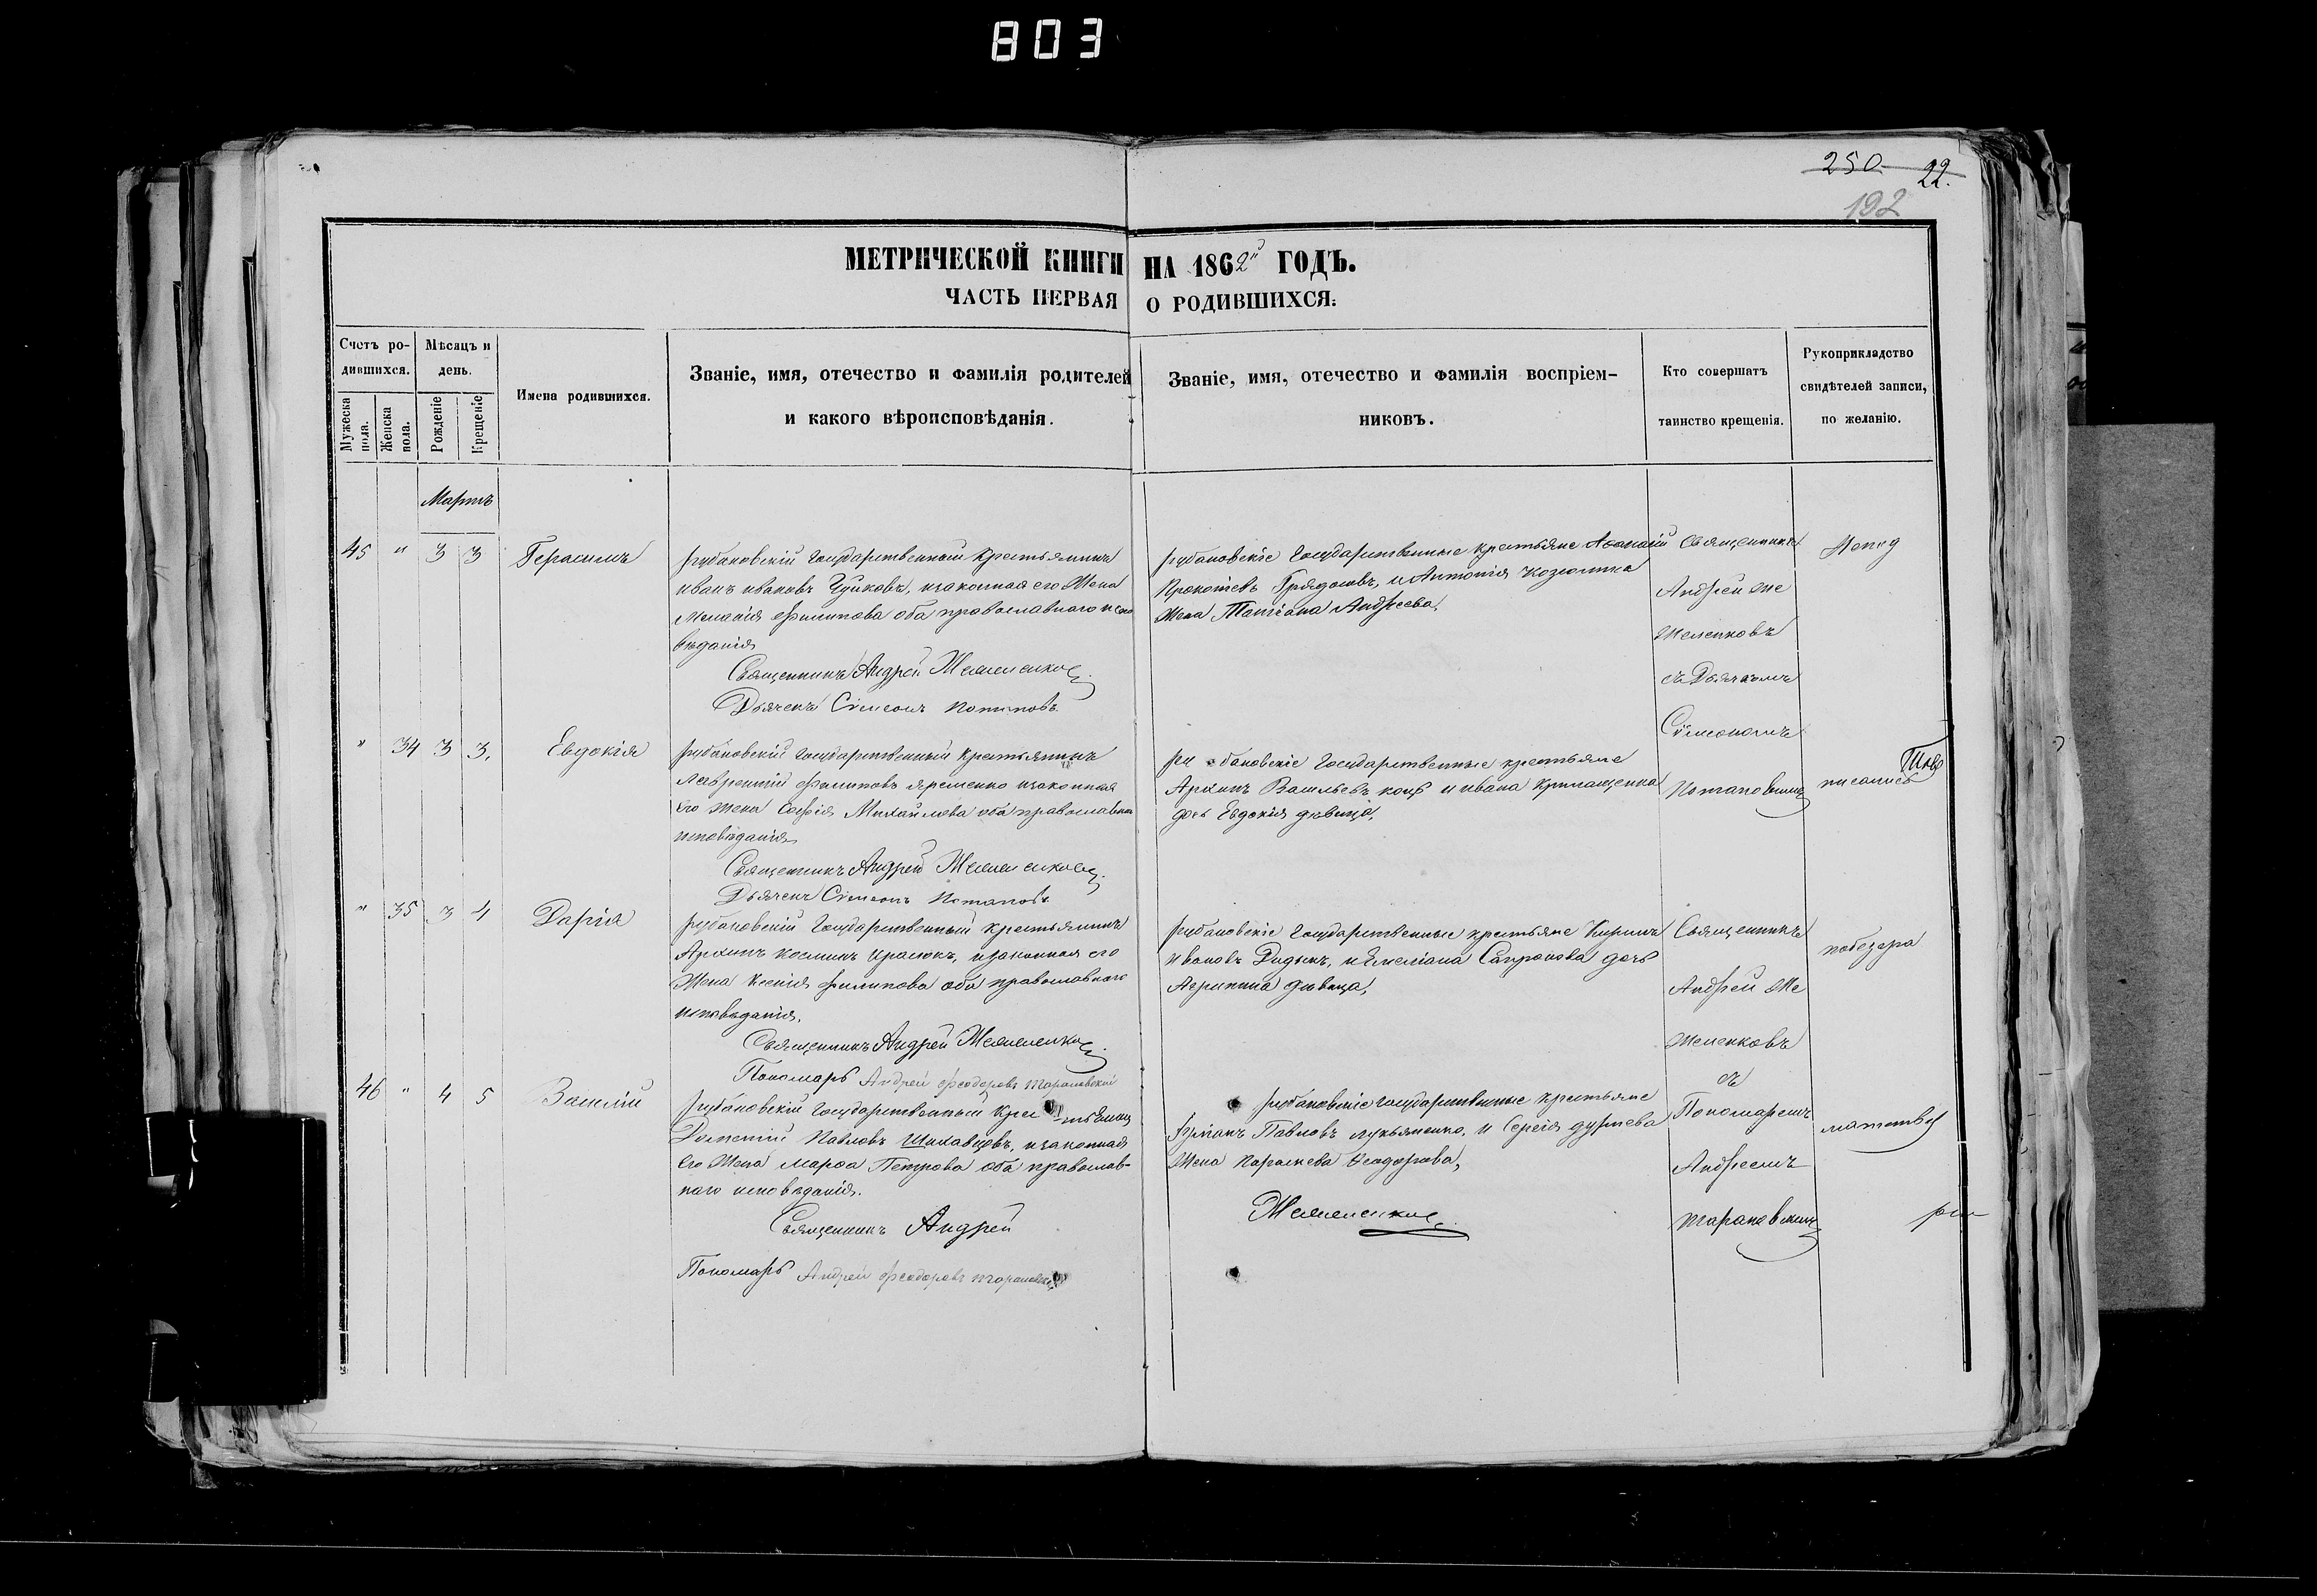 803
250 22.
192
МЕТРИЧЕСКОЙ КНИГИ НА 1862й ГОДЪ.
ЧАСТЬ ПЕРВАЯ О РОДИВШИХСЯ:
Счетъ ро-
дившихся.
Мужеска пола.
Женска пола.
Мѣсяцъ и
день.
Рожденіе
Крещеніе
Имена родившихся.
Званіе, имя, отечество и фамилія родителей
и какого вѣроисповѣданія.
Званіе, имя, отечество и фамилія воспріем-
никовъ.
Кто совершатъ
таинство крещенія.
Рукоприкладство
свидѣтелей записи,
по желанію.
Мартъ
45 " 3 3 Герасимъ
рубановскій государственный крестьянинъ
иванъ ивановъ Чуйковъ, изаконная его Жена
Меланія филипова оба православнаго испо
вѣданія
Священникъ Андрей
Дьячекъ Сімеонъ Потаповъ
рубановскіе государственные крестьяне Афанасій
Прокофіевъ Грядосовъ, и Антонія
Жена Татіана Андреева,
Священникъ
Андрей
съ Дьячкомъ
Сімеономъ
Потаповымъ
" 34 3 3. Евдокія
рубановскій государственный крестьянинъ
Лаврентій филиповъ яременко изаконная
его жена Софія Михайлова оба православнаго
исповѣданія
Священникъ Андрей
Дьячекъ Сімеонъ Потаповъ
рубановскіе государственные крестьяне
Архипъ Васильевъ и ивана
дочь Евдокія дѣвица,
" 35 3 4 Дарія
рубановскій государственный крестьянинъ
Архипъ изаконная его
Жена Ксенія филипова оба православнаго
исповѣданія,
Священникъ Андрей
Пономарь Андрей феодоровъ Тарановскій
рубановскіе государственные крестьяне Кирилъ
Ивановъ Дидыкъ, и Емеліана Сапронова дочь
Агрипина дѣвица,
Священникъ
Андрей
съ
Пономаремъ
Андреемъ
Тарановскимъ
46 " 4 5 Василій
рубановскій государственный крестьянинъ
Дометій Павловъ изаконная
его Жена марфа Петрова оба православ-
наго исповѣданія.
Священникъ Андрей
Пономарь Андрей феодоровъ Тарановскій
рубановскіе государственные крестьяне
Павловъ лукьяненко, и Сергія
Жена Параскева Феодорова,